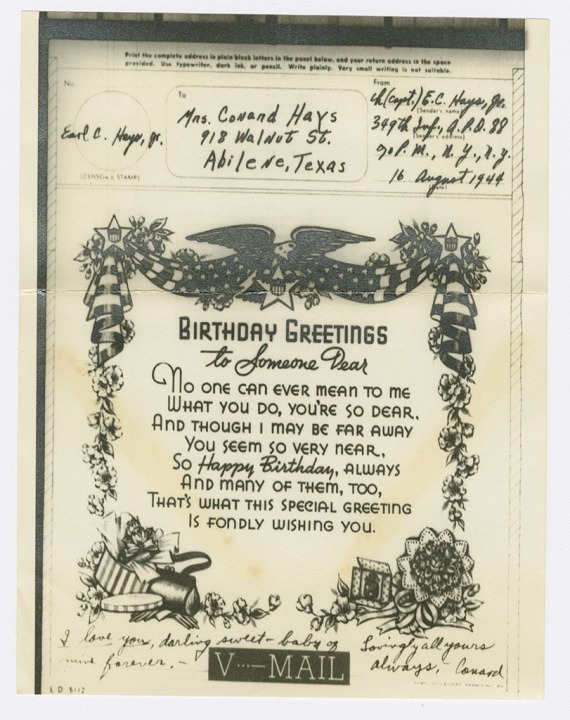 Print the complete address in plain block letters in the panel below, and your return address in the space
provided. Use typewriter, dark ink, or pencil. Write plainly. Very small writing is not suitable.
No.
Earl C. Hays, Jr.
(CENSOR'S STAMP)
To
Mrs. Conard Hays
918 Walnut St.
Abilene, Texas
From
Ch. (Capt.) E.C. Hays, Jr.
(Sender's name)
349th Inf., A.P.O. 88
(Sender's address)
% P. M., N. Y., N. Y.
16 August 1944
(Date)
BIRTHDAY GREETINGS
to Someone Dear
NO ONE CAN EVER MEAN TO ME
WHAT YOU DO, YOU'RE SO DEAR,
AND THOUGH I MAY BE FAR AWAY
YOU SEEM SO VERY NEAR,
SO Happy Birthday, ALWAYS
AND MANY OF THEM, TOO,
THAT'S WHAT THIS SPECIAL GREETING
IS FONDLY WISHING YOU.
I love you, darling sweet-baby of
mine forever. -
Lovingly all yours
always, - Conard
V···—MAIL
E.D. 5112